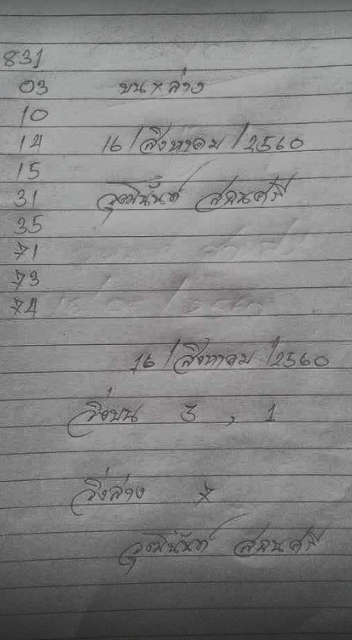 831
03 บน x ล่าง
10
14 16 / สิงหาคม / 2560
15
31 วุฒินันท์
35
71
73
74
16 / สิงหาคม / 2560
วิ่งบน 3 , 1
วิ่งล่าง 7
วุฒินันท์